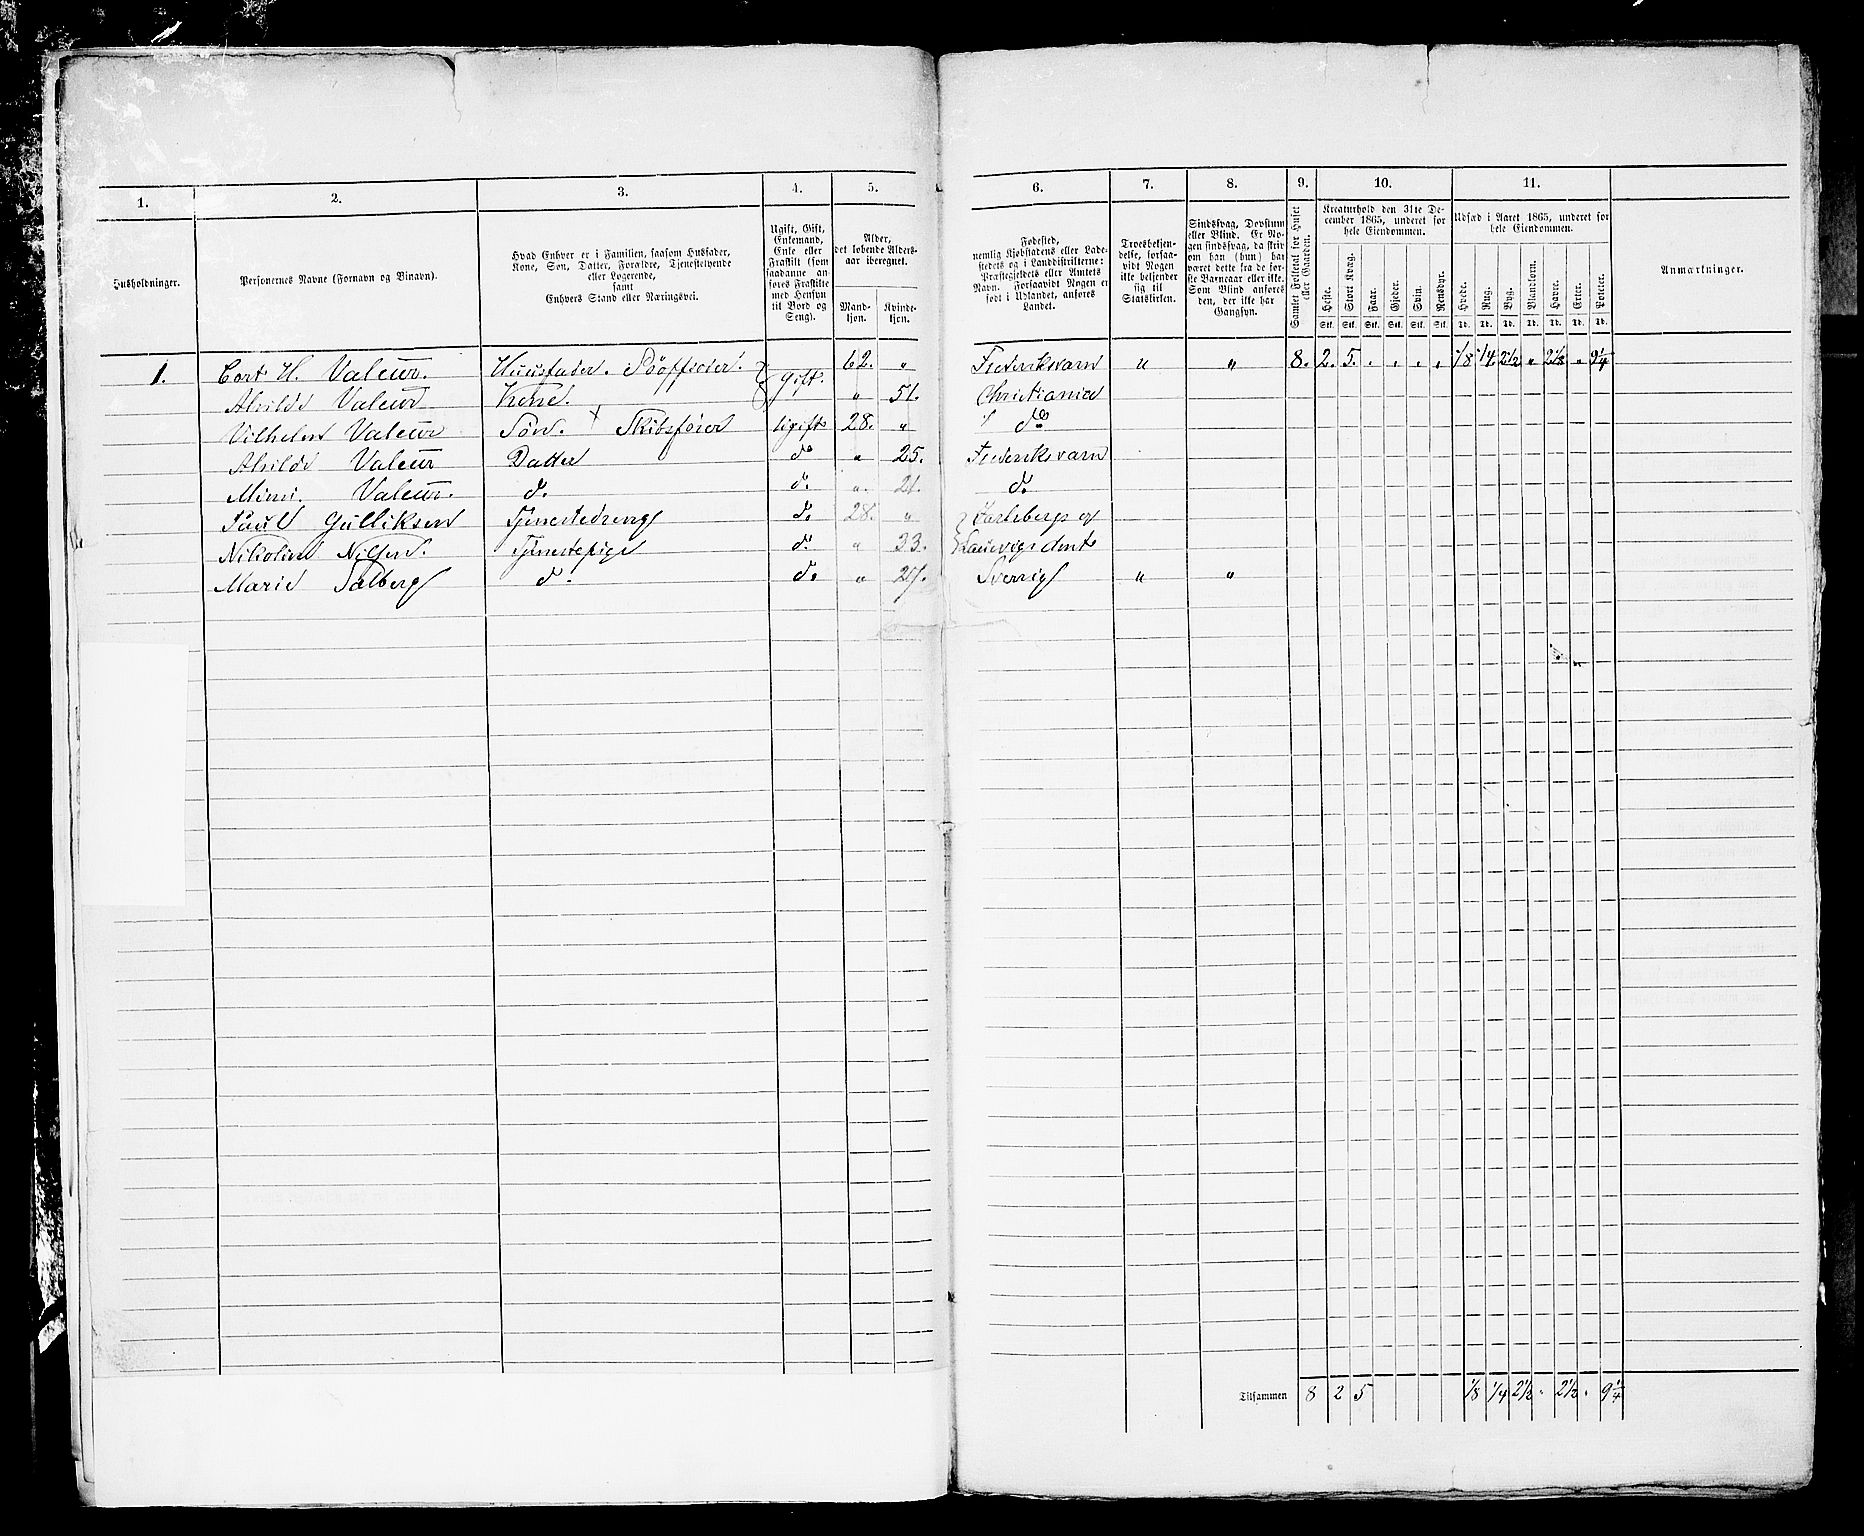 1. 2. 3. 4. 5. 6. 7. 8. 9. 10. 11.
Husholdninger.
Personernes Navne (Fornavn og Binavn).
Hvad Enhver er i Familien, saasom Husfader,
Kone, Søn, Datter, Forældre, Tjenestetyende
eller Logerende,
samt
Enhvers Stand eller Næringsvei.
Ugift, Gift,
Enkemand,
Enke eller
Fraskilt (som
saadanne an-
føres Fraskilte
med Hensyn
til Bord og
Seng).
Alder,
det løbende Alders-
aar iberegnet.
Mand-
kjøn.
Kvinde-
kjøn.
Fødested,
nemlig Kjøbstadens eller Lade-
stedets og i Landdistrikterne:
Præstegjeldets eller Amtets
Navn. Forsaavidt Nogen er
født i Udlandet, anføres
Landet.
Troesbekjen-
delse, forsaa-
vidt Nogen
ikke bekjender
sig til
Statskirken.
Sindssvag, Døvstum
eller Blind. Er No-
gen sindssvag, da skriv
om han (hun) har
været dette fra de før-
ste Barneaar eller ikke.
Som Blind anføres
den, der ikke har
Gangsyn.
Samlet Folketal for Huset
eller Gaarden.
Kreaturhold den 31te De-
cember 1865, underet for
hele Eiendommen.
Heste. Stort Kvæg. Faar. Gjeder. Svin. Rensdyr.
Stk. Stk. Stk. Stk. Stk. Stk.
Udsæd i Aaret 1865, underet for
hele Eiendommen.
Hvede. Rug. Byg. Blandkorn. Havre. Erter. Poteter.
Td. Td. Td. Td. Td. Td. Td.
Anmærkninger.
1. Cort H. Valeur. Huusfader. Söofficier. gift. 62. " Frederiksværn " " 8. 2. 5. . . . . 1/8 1/4 2 1/2 " 2 1/2 " 9 1/4
Alvilde Valeur Kone. " 51. Christiania
Vilhelm Valeur Søn. Skibsfører Ugift 28. " do
Alvilde Valeur Datter do " 25. Frederiksværn
Mimi. Valeur. d. d. " 21. do
Paul Gulliksen Tjenestedreng d. 28. " Jarlsberg og
Nikoline Nilsen. Tjenestepige d. " 33. Laurvigs Amt
Marie Salberg d. d. " 27. Sverrig " "
Tilsammen 8 2 5 1/8 1/4 2 1/2 " 2 1/2 " 9 1/4